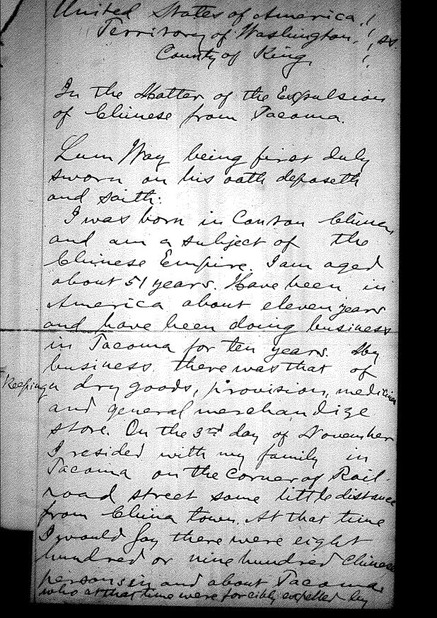 United States of America, }
Territory of Washington, } ss
County of King, }
In the Matter of the Expulsion
of Chinese from Tacoma.
Lum Way being first duly
sworn on his oath deposeth
and saith:
I was born in Canton China,
and am a subject of the
Chinese Empire. I am aged
about 51 years. Have been in
America about eleven years
and have been doing business
in Tacoma for ten years. My
business there was that of
Keeping a dry goods, provision, medicine
and general merchandize
store. On the 3rd day of November
I resided with my family in
Tacoma on the corner of Rail-
road street some little distance
from China town. At that time
I would say there were eight
hundred or nine hundred Chinese
persons in and about Tacoma
who at that time were forcibly expelled by